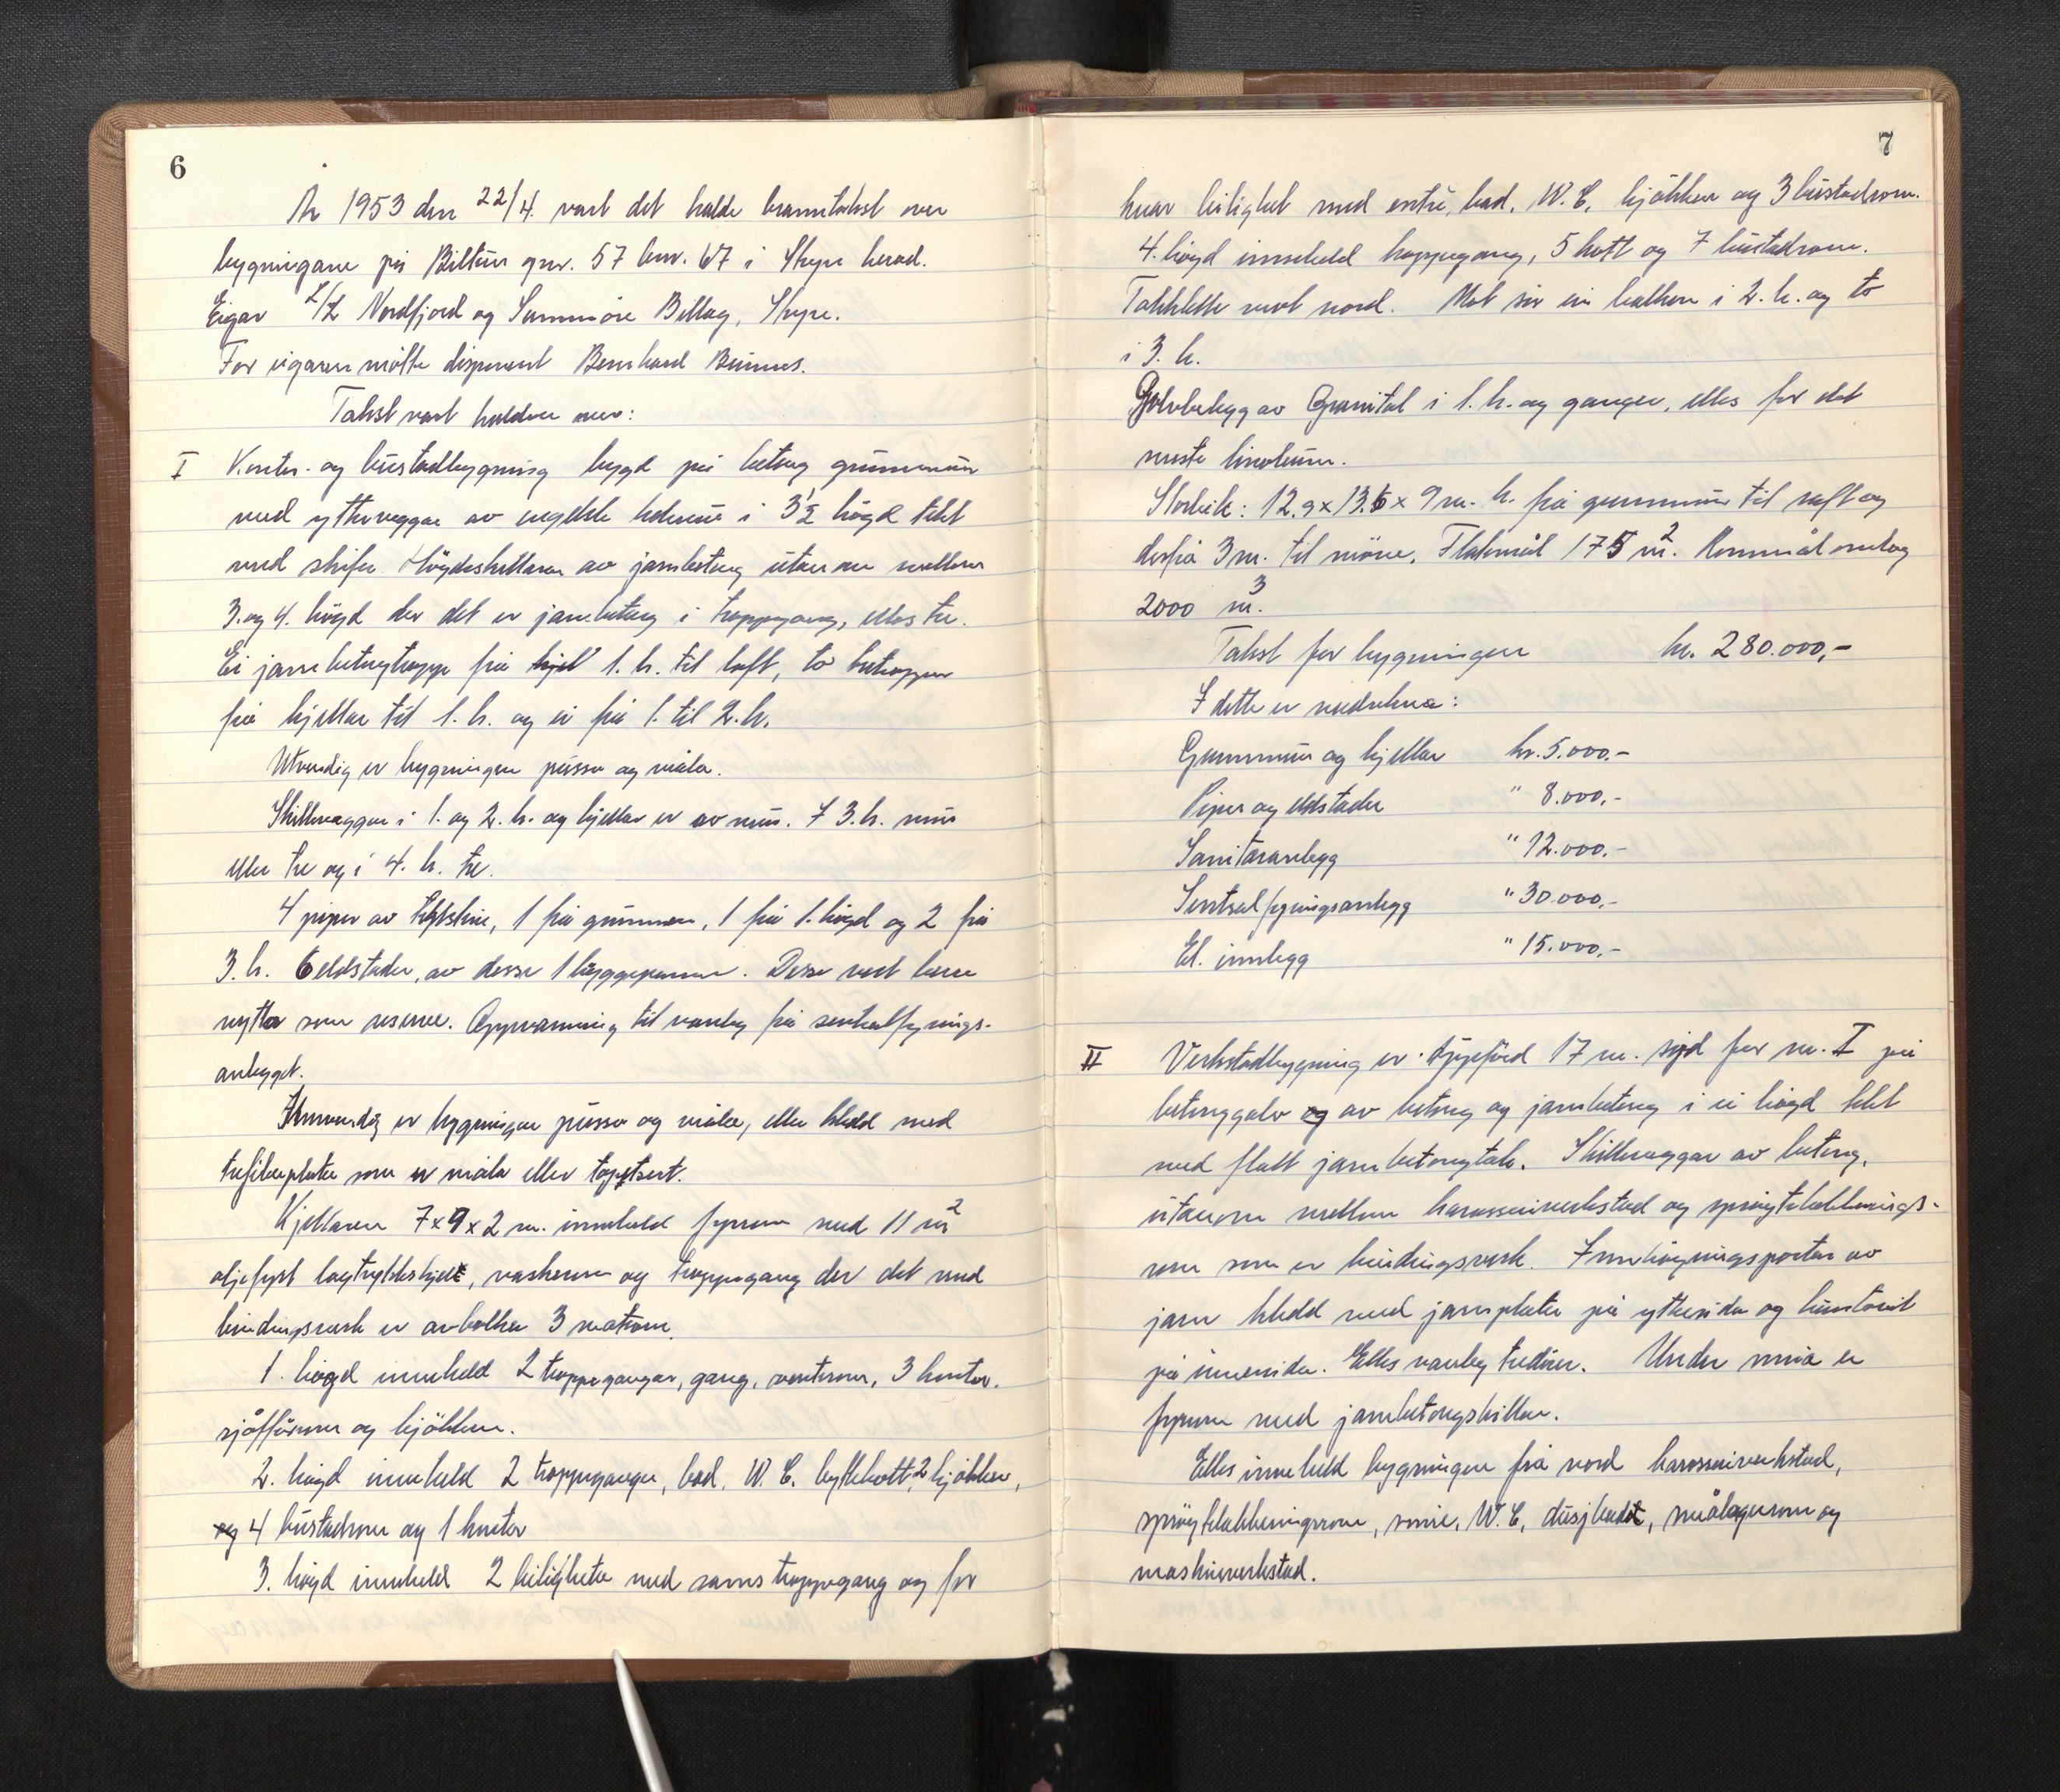 6
År 1953 den 22/4. vart det halde branntakst over
bygningane på Biltun gnr. 57 bnr. 67 i Stryn herad.
Eigar L/L Nordfjord og Sunnmöre Billag, Stryn.
For eigaren mötte disponent Bernhard
Takst vart halden over:
I Kontor- og bustadbygning bygd på betong grunnmur
med ytterveggar av engelsk holmur i 3½ högd tekt
med skifer. Högdeskillaren av jarnbetong utanom mellom
3. og 4. högd der det er jarnbetong i troppegang, elles tre.
Ei jarnbetongtropp frå kjel 1. h. til loft, to tretropper
frå kjellar til 1. h. og ei frå 1. til 2. h.
Utvendig er bygningen pussa og måla.
Skilleveggar i 1. og 2. h. og kjellar er av mur. I 3. h. mur
eller tre og i 4. h. tre.
4 piper av teglstein, 1 frå grunnen, 1 frå 1. högd og 2 frå
3. h. 6 eldstader, av desse 1 bryggepanne. Desse vert berre
nytta som reserve. Oppvarming til vanleg frå sentralfyrings-
anlegget.
Innvendig er bygningen pussa og måla, eller kledd med
trefiberplater som er måla eller tapetsert.
Kjellaren 7x9x2 m. inneheld fyrrom med 11 m²
oljefyrt lagtrykkskjel, vaskerom og troppegang der det med
bindingsverk er avbolka 3 matrom.
1. högd inneheld 2 troppegangar, gang, venterom, 3 kontor,
sjåfförrom og kjökken.
2. högd inneheld 2 troppeganger, bad, W.C. byttekott, 2 kjökken,
og 4 bustadrom og 1 kontor
3. högd inneheld 2 leiligheter med sams troppegang og for
7
kvar leilighet med entré, bad, W.C, kjökken og 3 bustadrom.
4. högd inneheld troppegang, 5 kott og 7 bustadrom.
Takklette mot nord. Mot sör ein balkon i 2. h. og to
i 3. h.
Golvbelegg av Granitol i 1. h. og ganger, elles for det
meste linoleum.
Storleik: 12.9 x 13.6 x 9 m. h. frå grunnmur til raft og
derfrå 3 m. til möne. Flatemål 175 m². Rommål omlag
2000 m³.
Takst for bygningen kr. 280.000,-
I dette er medrekna:
Grunnmur og kjellar kr. 5.000.-
Piper og eldstader " 8.000,-
Sanitæranlegg " 12.000.-
Sentralfyringsanlegg " 30.000.-
El. innlegg " 15.000,-
II Verkstadbygning er oppförd 17 m. syd for nr. I på
betonggolv og av betong og jarnbetong i ei högd tekt
med flatt jarnbetongtak. Skilleveggar av betong,
utanom mellom karosseriverkstad og spröytelakkerings-
rom som er bindingsverk. Innköyringsportar av
jarn kledd med jarnplater på yttersida og huntonit
på innersida. Elles vanleg tredörer. Under smia er
fyrrom med jarnbetongskillar.
Elles inneheld bygningen frå nord karosseriverkstad,
spröytelakkeringsrom, smie, W.C, dusjbad, smålagerrom og
maskinverkstad.